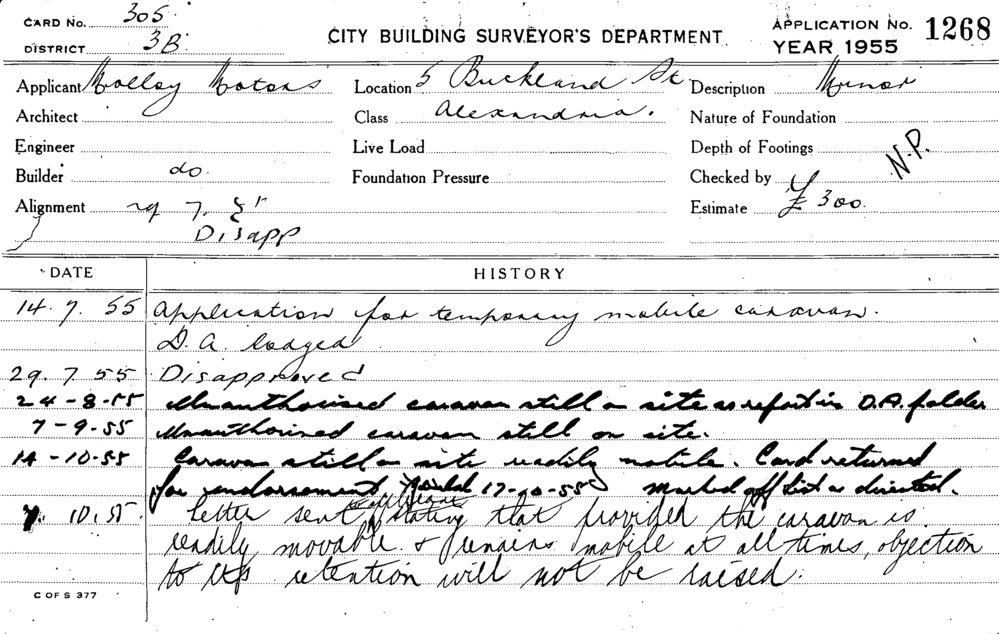 CARD No. 305
DISTRICT 3B
CITY BUILDING SURVEYOR'S DEPARTMENT
APPLICATION No. 1268
YEAR 1955
Applicant Molloy Motors Location 5 Buckland St Description Minor
Architect Class Alexandria. Nature of Foundation
Engineer Live Load Depth of Footings N.P.
Builder do. Foundation Pressure Checked by
Alignment Estimate £300.
Disapp
DATE HISTORY
14.7.55 Application for temporary mobile caravan.
D.A. lodged
29.7.55 Disapproved
24-8-55 Unauthorised caravan still on site as report in D.A. folder
7-9-55 Unauthorised caravan still on site.
14-10-55 Caravan still on site readily mobile. Card returned
for endorsement 17-10-55 marked off list as directed.
10.55. Letter sent to applicant stating that provided the caravan is
readily movable & remains mobile at all times, objection
to its retention will not be raised.
C OF S 377